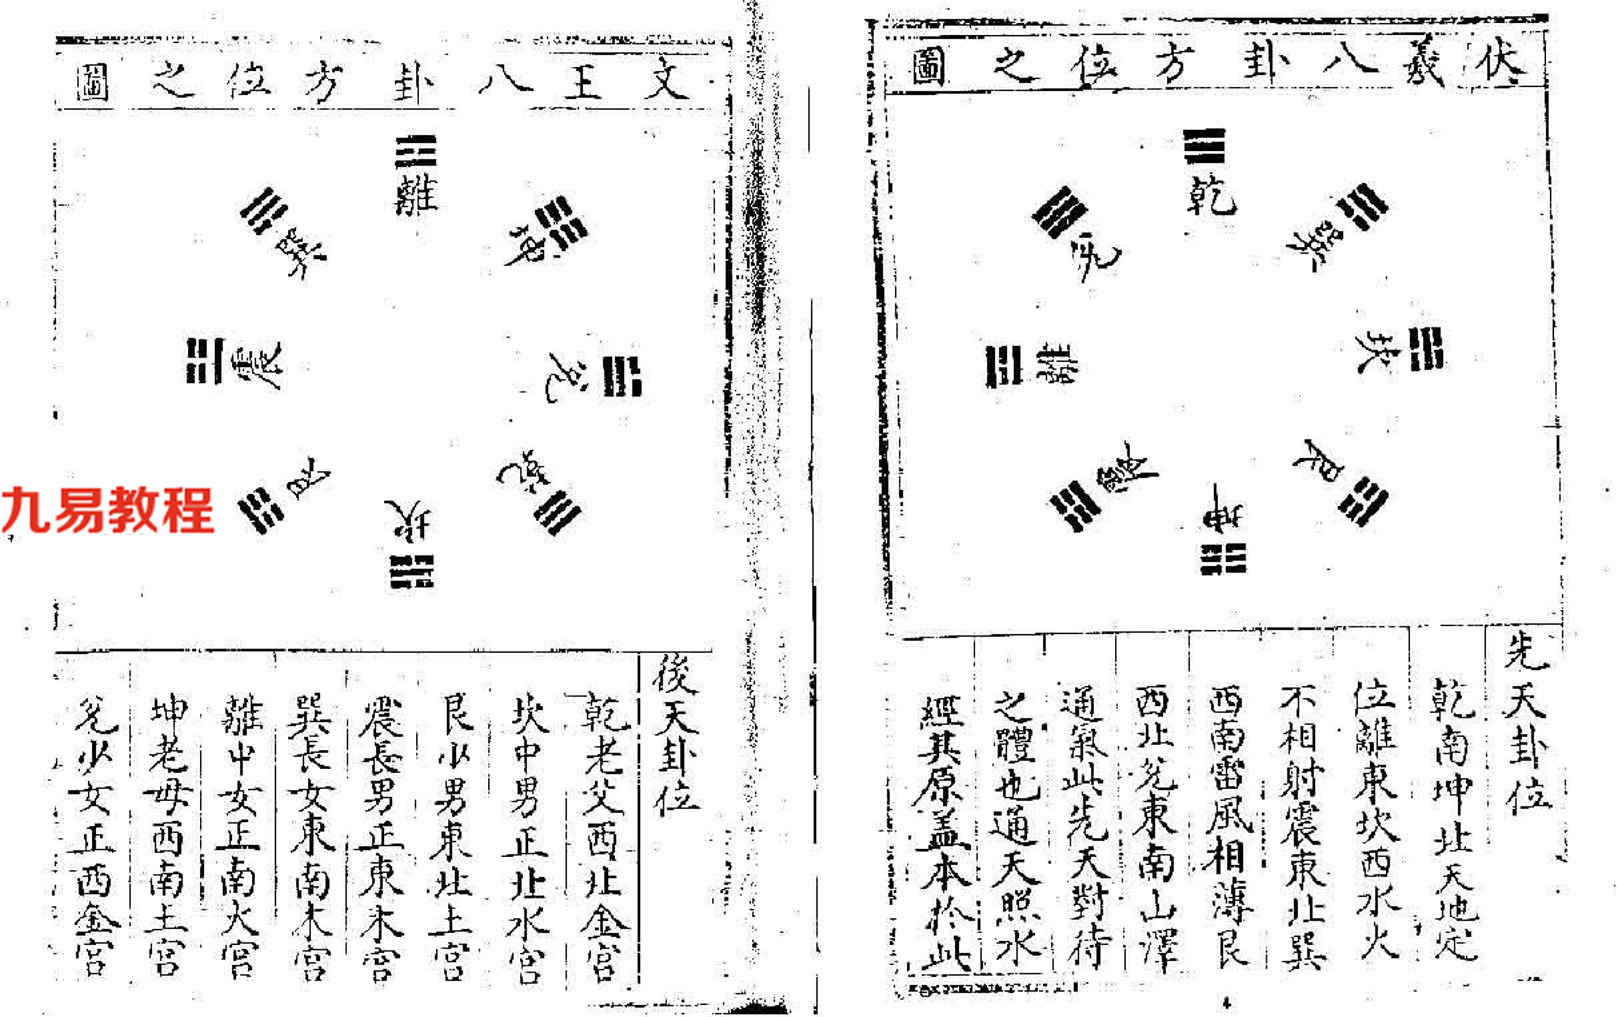 伏羲八卦方位之圖
乾
兌
巽
離
坎
震
艮
坤
先天卦位
乾南坤北天地定
位離東坎西水火
不相射震東北巽
西南雷風相薄艮
西北兌東南山澤
通氣此先天對待
之體也通天照水
經其原盖本於此
文王八卦方位之圖
離
巽
坤
震
兌
艮
乾
坎
後天卦位
乾老父西北金宮
坎中男正北水宮
艮少男東北土宮
震長男正東木宮
巽長女東南木宮
離中女正南火宮
坤老母西南土宮
兌少女正西金宮
九易教程
4